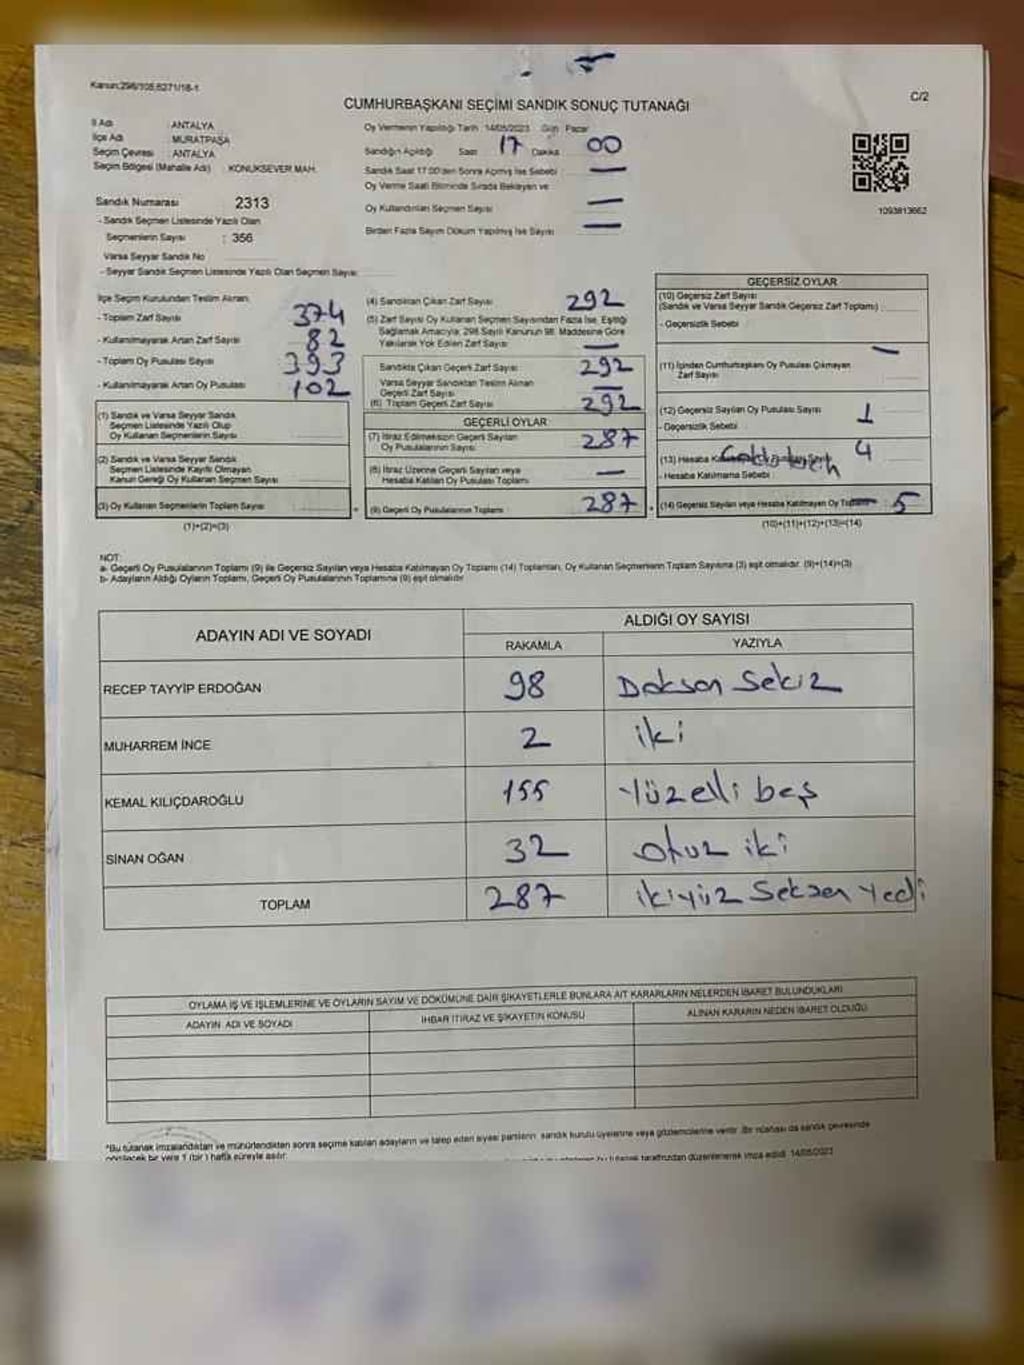 Kanun:298/105,6271/18-1
C/2
CUMHURBAŞKANI SEÇİMİ SANDIK SONUÇ TUTANAĞI
İl Adı : ANTALYA
İlçe Adı : MURATPAŞA
Seçim Çevresi : ANTALYA
Seçim Bölgesi (Mahalle Adı) : KONUKSEVER MAH.
Sandık Numarası 2313
- Sandık Seçmen Listesinde Yazılı Olan
Seçmenlerin Sayısı : 356
Varsa Seyyar Sandık No
- Seyyar Sandık Seçmen Listesinde Yazılı Olan Seçmen Sayısı
Oy Vermenin Yapıldığı Tarih : 14/05/2023 Gün : Pazar
Sandığın Açıldığı Saat 17 Dakika 00
Sandık Saat 17.00'den Sonra Açılmış İse Sebebi —
Oy Verme Saati Bitiminde Sırada Bekleyen ve
Oy Kullandırılan Seçmen Sayısı —
Birden Fazla Sayım Döküm Yapılmış İse Sayısı —
1093813662
İlçe Seçim Kurulundan Teslim Alınan;
- Toplam Zarf Sayısı 374
- Kullanılmayarak Artan Zarf Sayısı 82
- Toplam Oy Pusulası Sayısı 393
- Kullanılmayarak Artan Oy Pusulası 102
(1) Sandık ve Varsa Seyyar Sandık
Seçmen Listesinde Yazılı Olup
Oy Kullanan Seçmenlerin Sayısı
(2) Sandık ve Varsa Seyyar Sandık
Seçmen Listesinde Kayıtlı Olmayan
Kanun Gereği Oy Kullanan Seçmen Sayısı
(3) Oy Kullanan Seçmenlerin Toplam Sayısı
(1)+(2)=(3)
(4) Sandıktan Çıkan Zarf Sayısı 292
(5) Zarf Sayısı Oy Kullanan Seçmen Sayısından Fazla İse, Eşitliği
Sağlamak Amacıyla; 298 Sayılı Kanunun 98. Maddesine Göre
Yakılarak Yok Edilen Zarf Sayısı —
Sandıkta Çıkan Geçerli Zarf Sayısı 292
Varsa Seyyar Sandıktan Teslim Alınan
Geçerli Zarf Sayısı —
(6) Toplam Geçerli Zarf Sayısı 292
GEÇERLİ OYLAR
(7) İtiraz Edilmeksizin Geçerli Sayılan
Oy Pusulalarının Sayısı 287
(8) İtiraz Üzerine Geçerli Sayılan veya
Hesaba Katılan Oy Pusulası Toplamı —
(9) Geçerli Oy Pusulalarının Toplamı 287
GEÇERSİZ OYLAR
(10) Geçersiz Zarf Sayısı
(Sandık ve Varsa Seyyar Sandık Geçersiz Zarf Toplamı)
- Geçersizlik Sebebi
—
(11) İçinden Cumhurbaşkanı Oy Pusulası Çıkmayan
Zarf Sayısı
(12) Geçersiz Sayılan Oy Pusulası Sayısı 1
- Geçersizlik Sebebi
(13) Hesaba 4
- Hesaba Katılmama Sebebi
(14) Geçersiz Sayılan veya Hesaba Katılmayan Oy Toplamı 5
(10)+(11)+(12)+(13)=(14)
NOT:
a- Geçerli Oy Pusulalarının Toplamı (9) ile Geçersiz Sayılan veya Hesaba Katılmayan Oy Toplamı (14) Toplamları, Oy Kullanan Seçmenlerin Toplam Sayısına (3) eşit olmalıdır. (9)+(14)=(3)
b- Adayların Aldığı Oyların Toplamı, Geçerli Oy Pusulalarının Toplamına (9) eşit olmalıdır.
ADAYIN ADI VE SOYADI
ALDIĞI OY SAYISI
RAKAMLA YAZIYLA
RECEP TAYYİP ERDOĞAN 98 Doksan Sekiz
MUHARREM İNCE 2 iki
KEMAL KILIÇDAROĞLU 155 Yüzelli beş
SİNAN OĞAN 32 otuz iki
TOPLAM 287 ikiyüz Seksen Yedi
OYLAMA İŞ VE İŞLEMLERİNE VE OYLARIN SAYIM VE DÖKÜMÜNE DAİR ŞİKAYETLERLE BUNLARA AİT KARARLARIN NELERDEN İBARET BULUNDUKLARI
ADAYIN ADI VE SOYADI İHBAR İTİRAZ VE ŞİKAYETİN KONUSU ALINAN KARARIN NEDEN İBARET OLDUĞU
*Bu tutanak imzalandıktan ve mühürlendikten sonra seçime katılan adayların ve talep eden siyasi partilerin sandık kurulu üyelerine veya gözlemcilerine verilir. Bir nüshası da sandık çevresinde
görülecek bir yere 1 (bir) hafta süreyle asılır. bu tutanak tarafımızdan düzenlenerek imza edildi. 14/05/2023